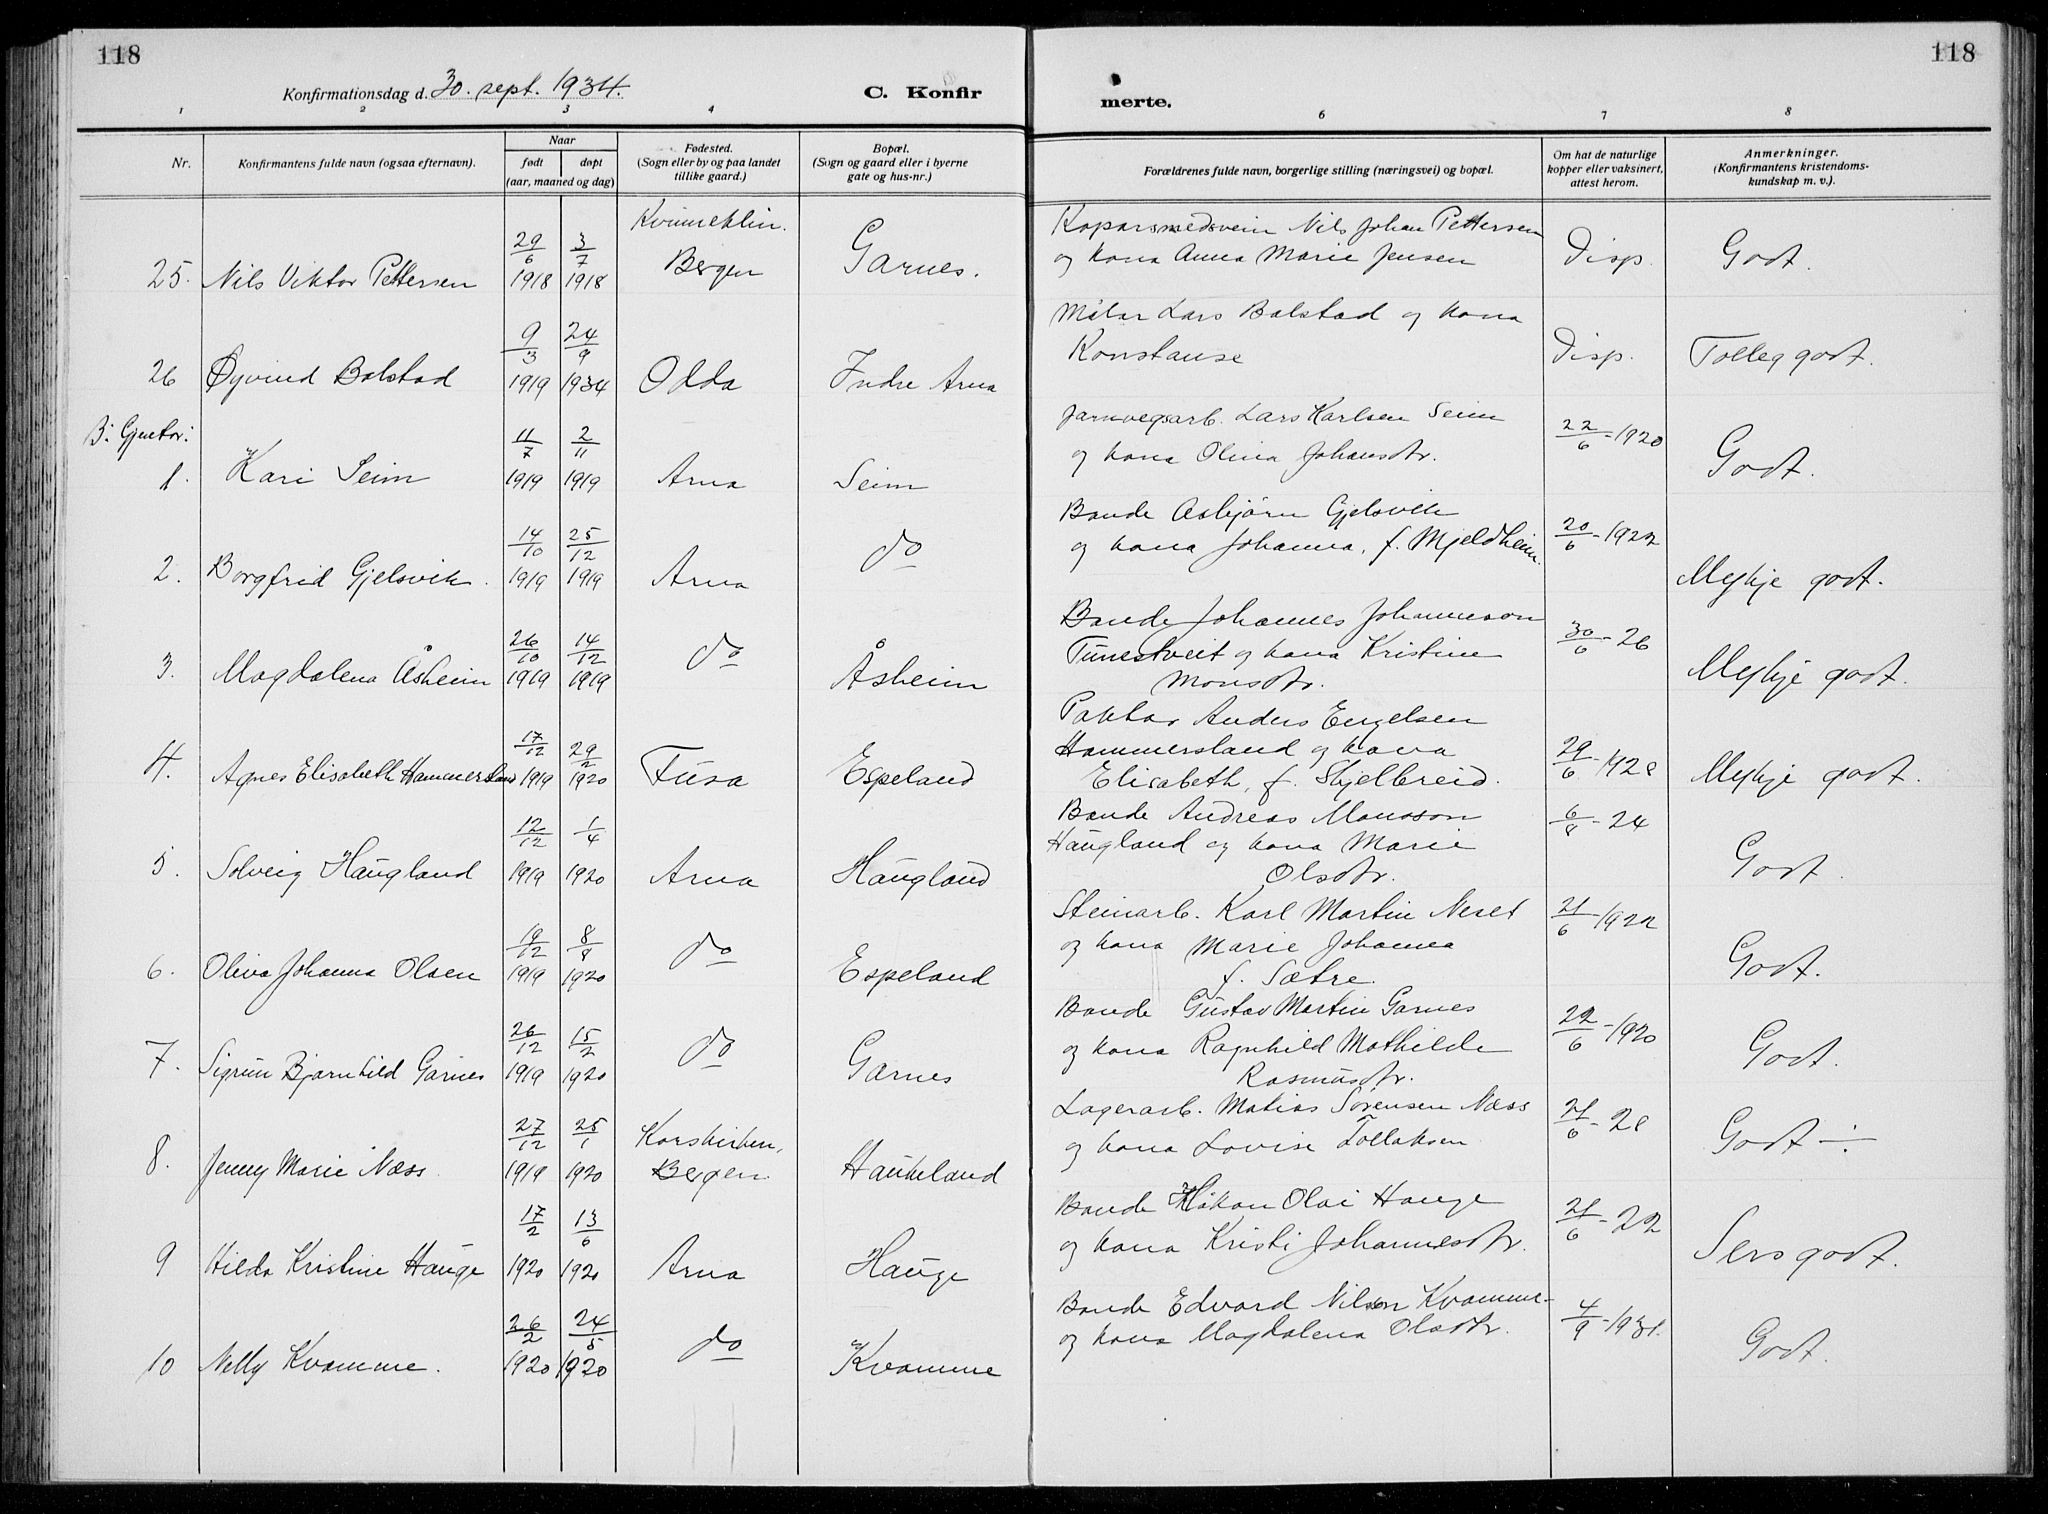 118
118
Konfirmationsdag d. 30. sept. 1934.
C. Konfir
merte.
1 2 3 4 6 7 8
Nr.
Konfirmantens fulde navn (ogsaa efternavn).
Naar
født
døpt
(aar, maaned og dag)
Fødested.
(Sogn eller by og paa landet
tillike gaard.)
Bopæl.
(Sogn og gaard eller i byerne
gate og hus-nr.)
Forældrenes fulde navn, borgerlige stilling (næringsvei) og bopæl.
Om hat de naturlige
kopper eller vaksinert,
attest herom.
Anmerkninger.
(Konfirmantens kristendoms-
kundskap m. v.).
25. Nils Viktor Pettersen 29/6 1918 3/7 1918 Kvinneklin. Bergen Garnes.
Koparsmedsvein Nils Johan Pettersen
og kona Anna Marie Jensen
Disp. Godt.
26 Øyvind Bolstad 9/3 1919 24/9 1934 Odda Indre Arna
Målar Lars Bolstad og kona
Konstanse
Disp. Tolleg godt.
B. Gjentor:
1. Kari Seim 11/7 1919 2/11 1919 Arna Seim
Jarnvegsarb. Lars Karlsen Seim
og kona Olina Johansdtr.
22/6-1920 Godt.
2. Borgfrid Gjelsvik. 14/10 1919 25/12 1919 Arna do
Bonde Asbjørn Gjelsvik
og kona Johanna, f. Mjeldheim.
20/6-1922 Mykje godt.
3. Magdalena Åsheim 26/10 1919 14/12 1919 do Åsheim
Bonde Johannes Johannesson
Tunestveit og kona Kristine
Monsdtr.
30/6-26 Mykje godt.
4. Agnes Elisabeth Hammersland 17/12 1919 29/2 1920 Fusa Espeland
Paktar Anders Engelsen
Hammersland og kona
Elisabeth, f. Skjelbreid.
29/6-1928 Mykje godt.
5. Solveig Haugland 12/12 1919 1/4 1920 Arna Haugland
Bonde Andreas Monsson
Haugland og kona Marie
Olsdtr.
6/8-24 Godt.
6. Oliva Johanna Olsen 19/12 1919 8/8 1920 do Espeland
Steinarb. Karl Martin Neset
og kona Marie Johanna
f. Sætre.
21/6-1922 Godt.
7. Sigrun Bjarnhild Garnes 26/12 1919 15/2 1920 do Garnes
Bonde Gustav Martin Garnes
og kona Ragnhild Mathilde
Rasmusdtr.
22/6-1920 Godt.
8. Jenny Marie Næss. 27/12 1919 25/1 1920 Korskirken, Bergen Haukeland
Lagerarb. Matias Sørensen Næss
og kona Lovise Tollaksen
21/6-28 Godt ÷
9 Hilda Kristine Hauge 17/2 1920 13/6 1920 Arna Hauge
Bonde Håkon Olai Hauge
og kona Kristi Johannesdtr.
21/6-22 Sers godt.
10 Nelly Kvamme. 26/2 1920 24/5 1920 do Kvamme
Bonde Edvard Nilsen Kvamme
og kona Magdalena Olsdtr.
4/9-1931. Godt.